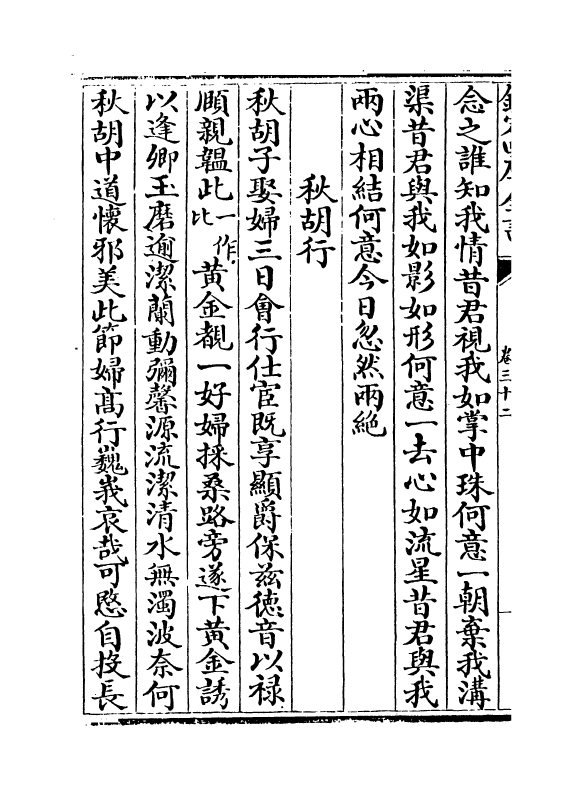 欽定四庫全書
卷三十二
念之誰知我情昔君視我如掌中珠何意一朝棄我溝
渠昔君與我如影如形何意一去心如流星昔君與我
兩心相結何意今日忽然兩絶
秋胡行
秋胡子娶婦三日會行仕宦既享顯爵保兹德音以禄
頤親韞此一作比黄金覩一好婦採桑路旁遂下黄金誘
以逢卿玉磨逾潔蘭動彌馨源流潔清水無濁波奈何
秋胡中道懷邪美此節婦髙行巍峩哀哉可愍自投長